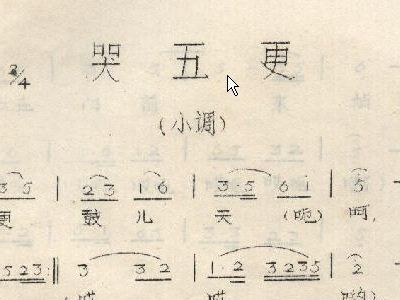 哭五更
2/4
(小调)
3 5 | 2 3 1 6 | 3·5 6 i | 5 -
更 鼓 儿 天 (呃) 呵,
5 2 3 | 3 3 2 | 1·2 3 2 3 5 | 2 -
(哎 哎 哟)